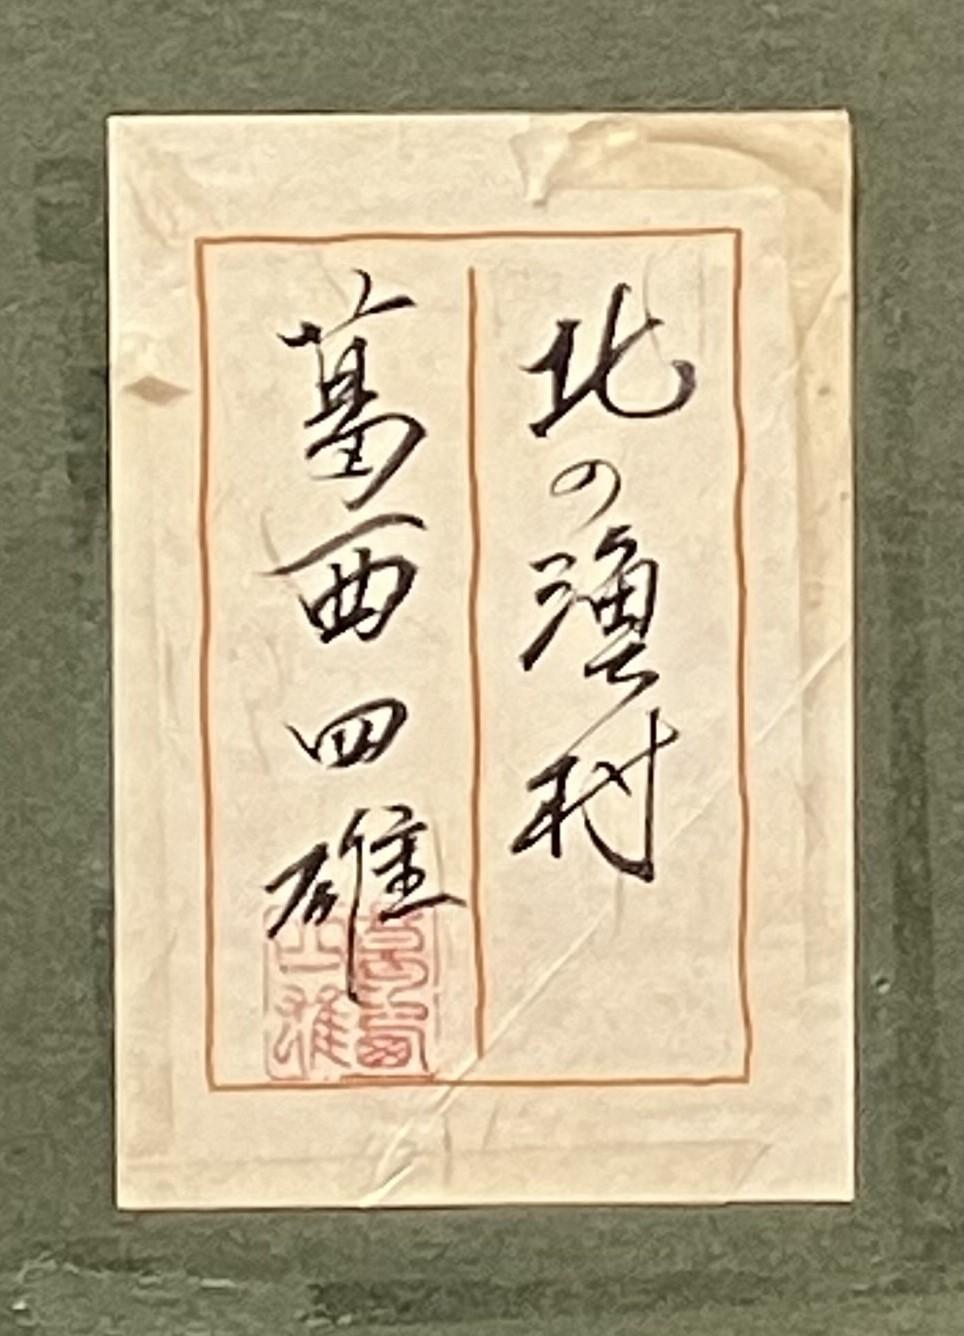 北の漁村
葛西四雄